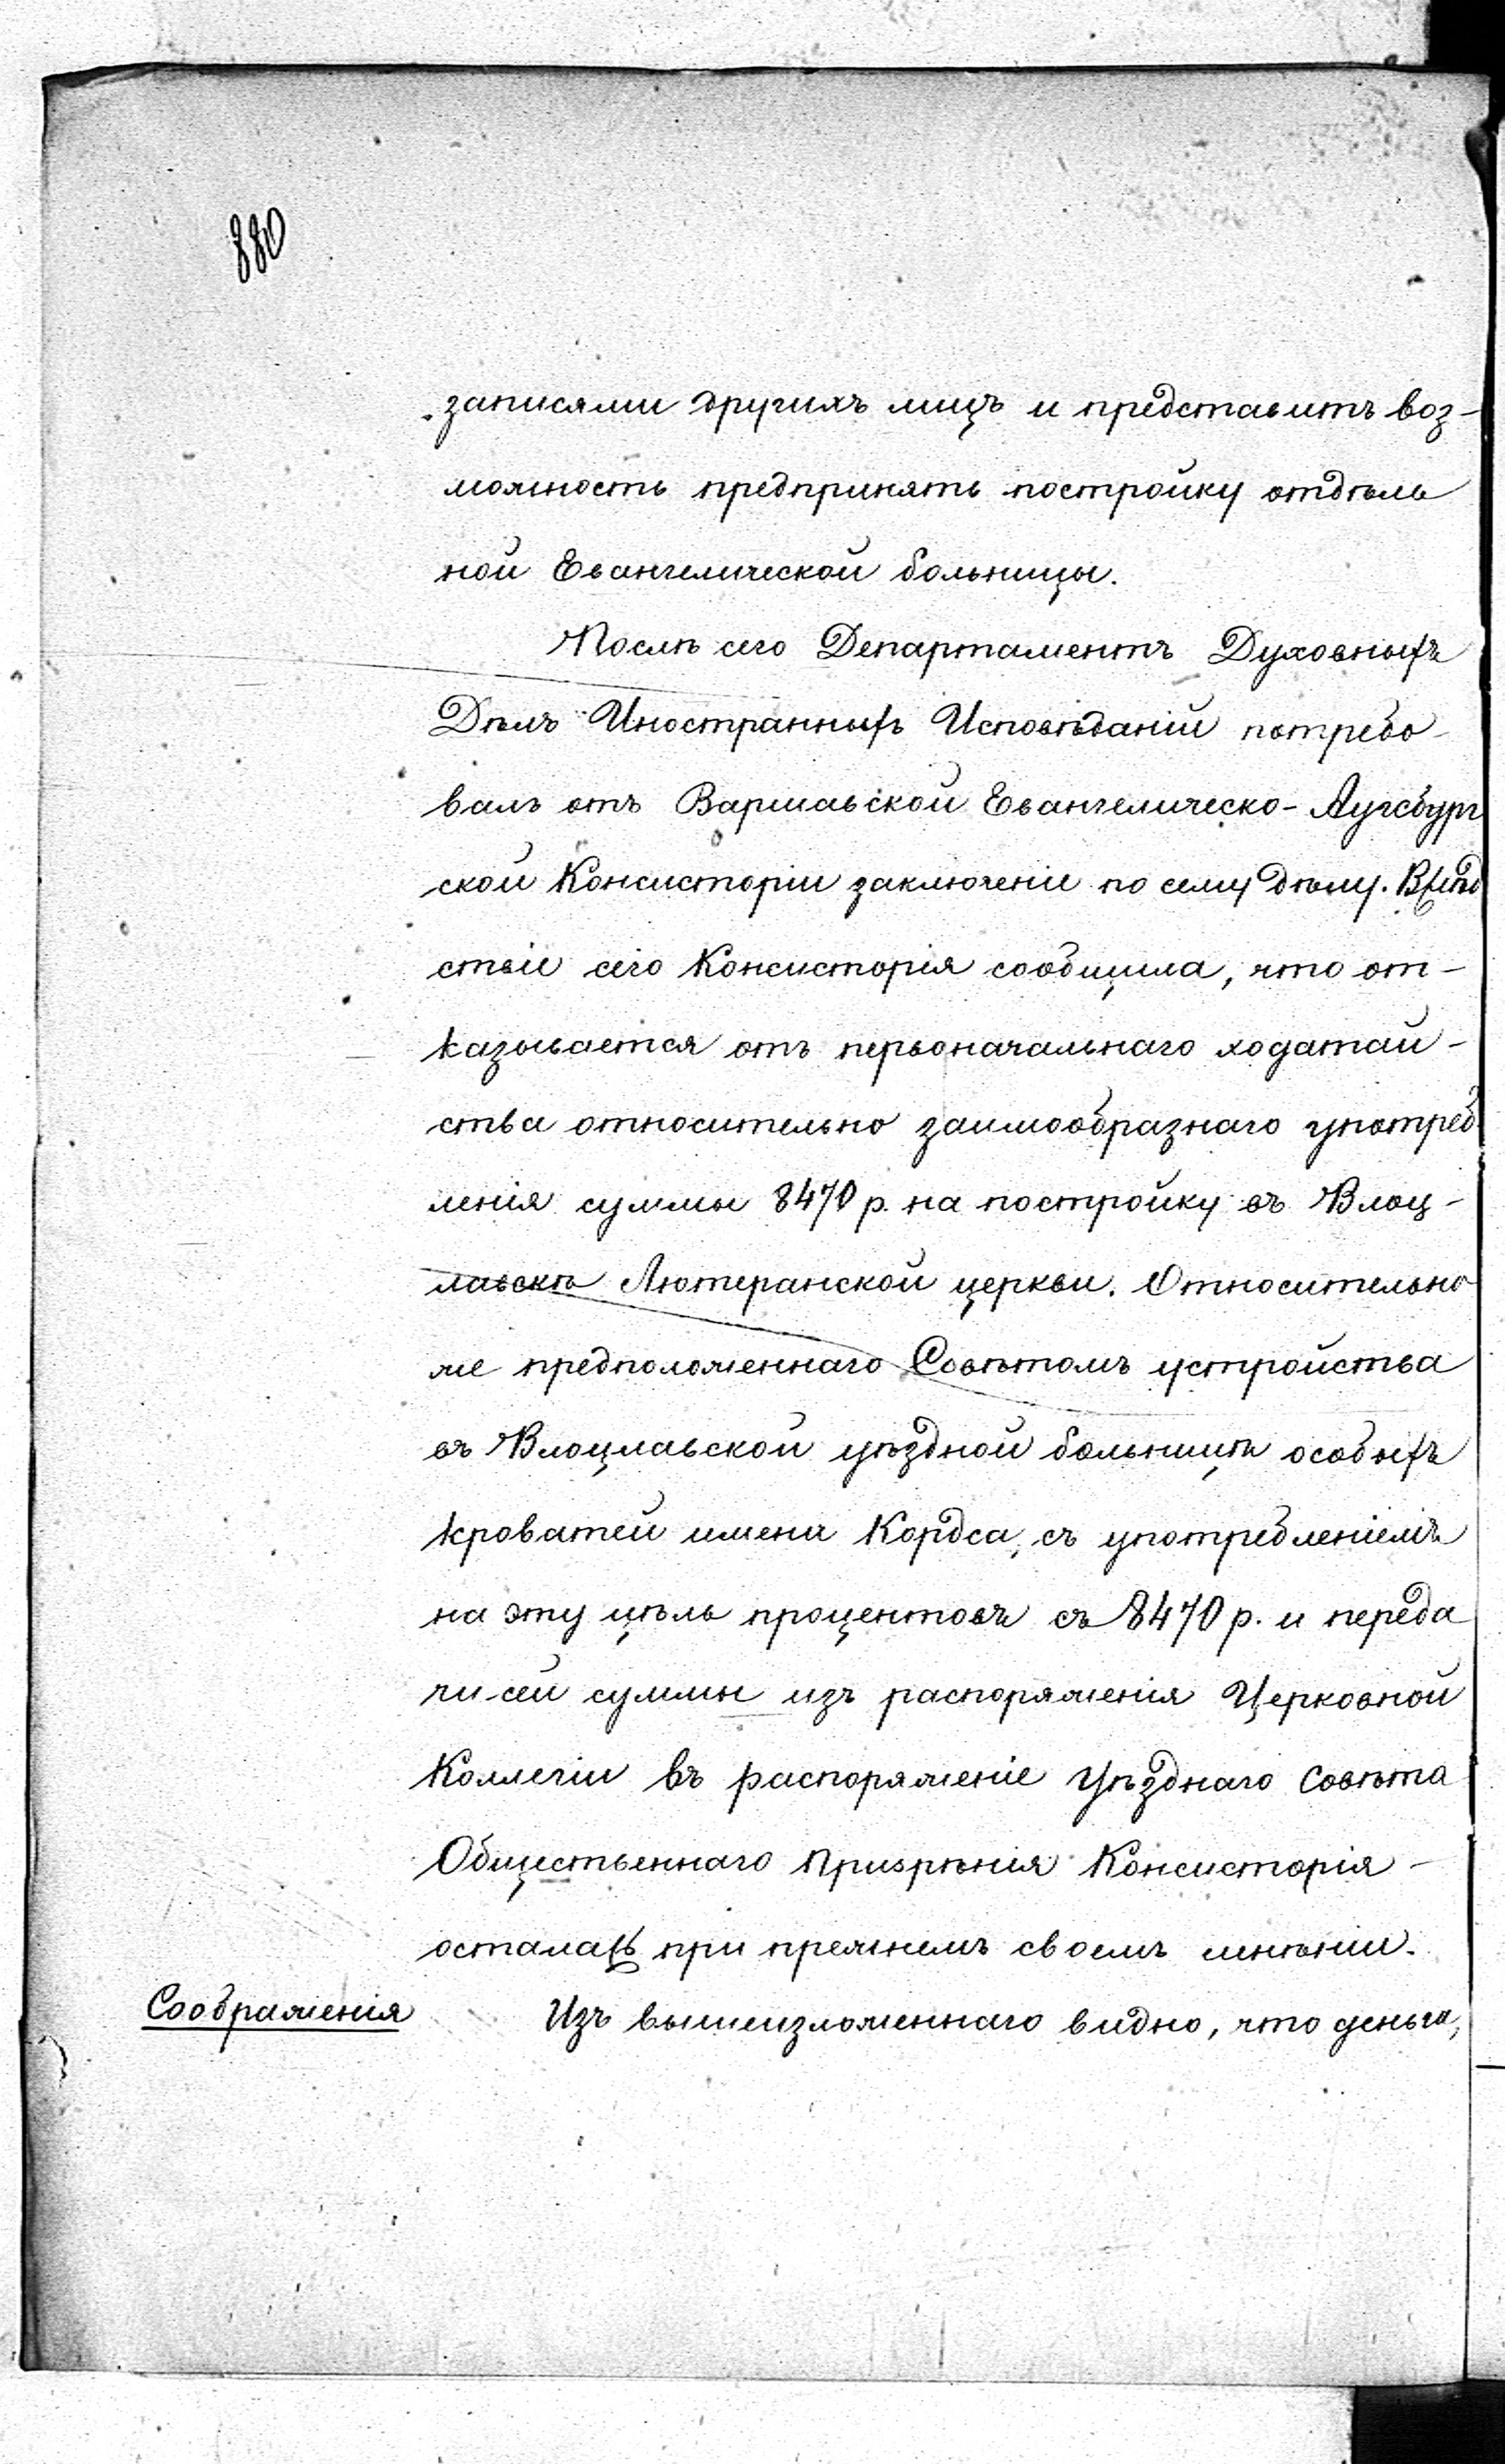 880
записями другихъ лицъ и представитъ воз-
можность предпринять постройку отдѣль
ной Евангелической больницы.
Послѣ сего Департаментъ Духовныхъ
Дѣлъ Иностранныхъ Исповѣданій потребо-
валъ отъ Варшавской Евангелическо-Аугсбург
ской Консисторіи заключеніе по сему дѣлу. Вслѣд
ствіе сего Консисторія сообщила, что от-
казывается отъ первоначальнаго ходатай-
ства относительно заимообразнаго употреб
ленія суммы 8470 р. на постройку въ Влоц-
лавскѣ Лютеранской церкви. Относительно
же предположеннаго Совѣтомъ устройства
въ Влоцлавской уѣздной больницѣ особыхъ
кроватей имени Кордса, съ употребленіемъ
на эту цѣль процентовъ съ 8470 р. и переда
чи сей суммы изъ распоряженія Церковной
Коллегіи въ распоряженіе Уѣзднаго Совѣта
Общественнаго Призрѣнія Консисторія
осталась при прежнемъ своемъ мнѣніи.
Соображенія Изъ вышеизложеннаго видно, что деньги,